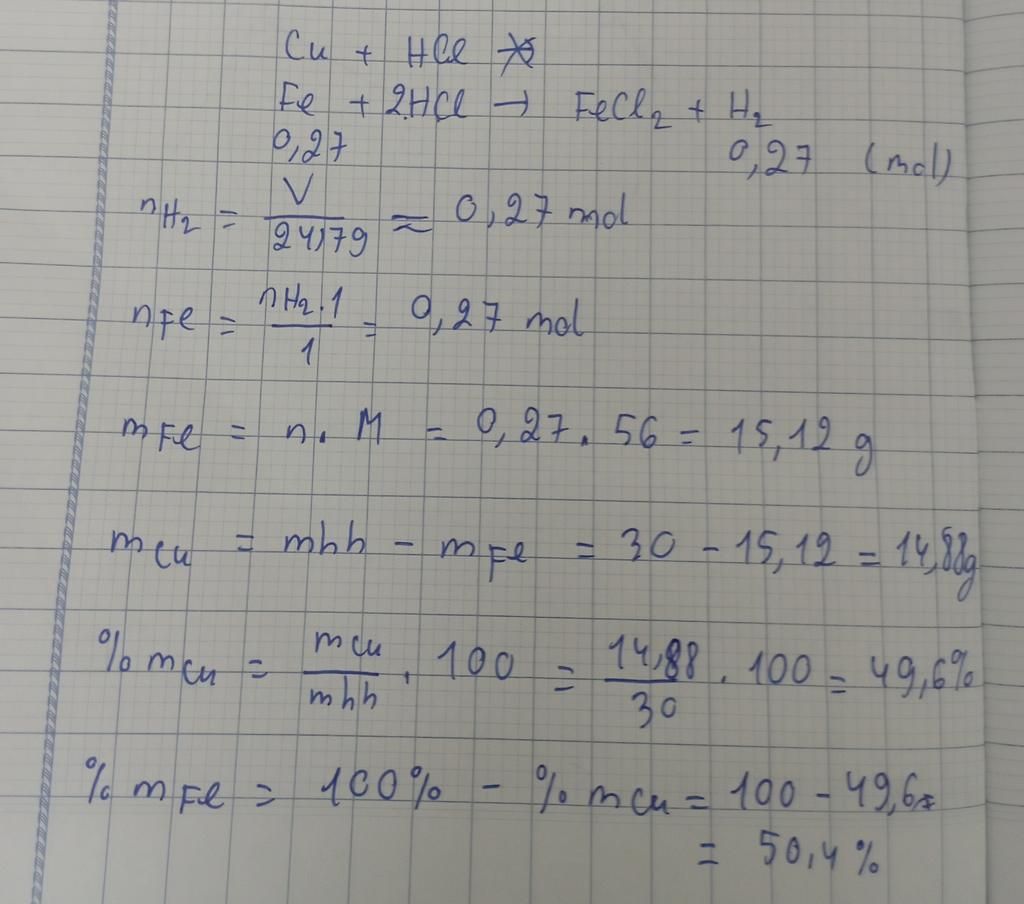 Cu + HCl ↛
Fe + 2HCl → FeCl₂ + H₂
0,27 0,27 (mol)
nH₂ = V/24,79 ≈ 0,27 mol
nFe = nH₂.1/1 = 0,27 mol
mFe = n. M = 0,27. 56 = 15,12 g
mCu = mhh - mFe = 30 - 15,12 = 14,88g
%mCu = mCu/mhh . 100 = 14,88/30 . 100 = 49,6%
%mFe = 100% - %mCu = 100 - 49,6
= 50,4%